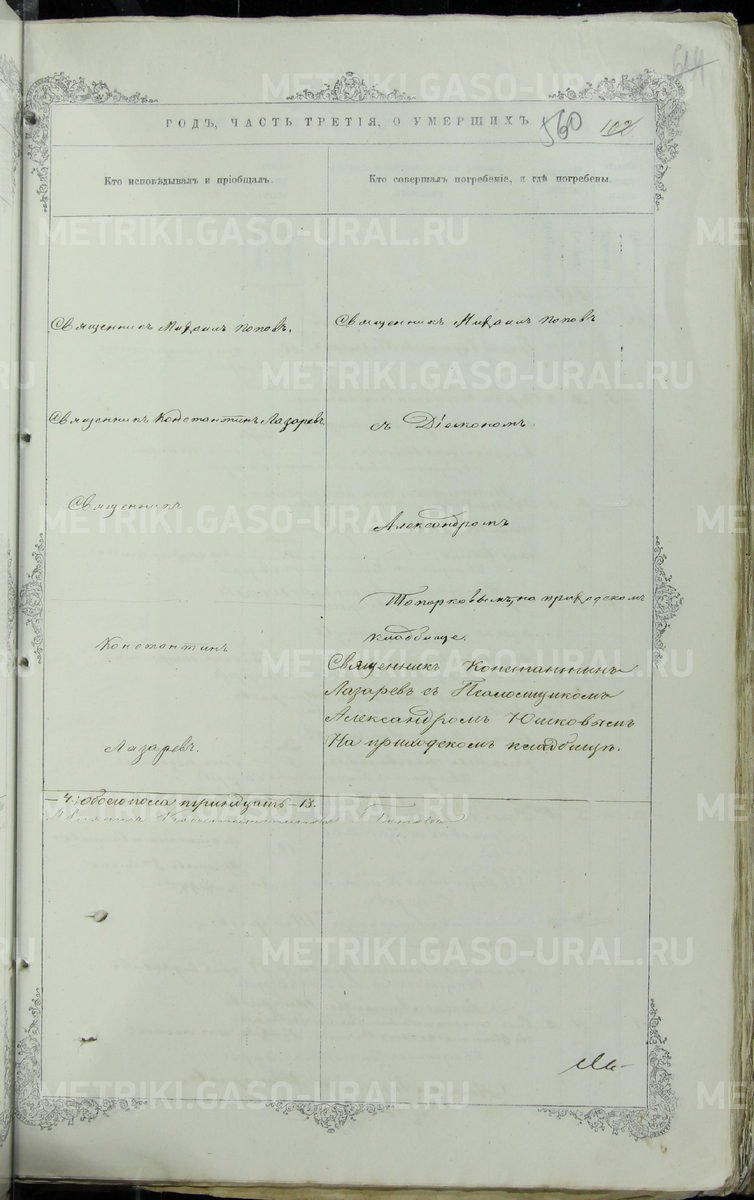 614
ГОДЪ, ЧАСТЬ ТРЕТІЯ, О УМЕРШИХЪ.
560 102
Кто исповѣдывалъ и пріобщалъ.
Кто совершалъ погребеніе, и гдѣ погребены.
Священникъ Михаилъ Поповъ.
Священникъ Михаилъ Поповъ
Священникъ Константинъ Лазаревъ
съ Діакономъ
Священникъ
Александромъ
Топорковымъ, на приходскомъ
кладбище.
Константинъ
Лазаревъ.
Священникъ Константинъ
Лазаревъ съ Псаломщикомъ
Александромъ Юшковымъ
На приходскомъ кладбищѣ.
— 4; обоего пола тринадцать — 13.
METRIKI.GASO-URAL.RU